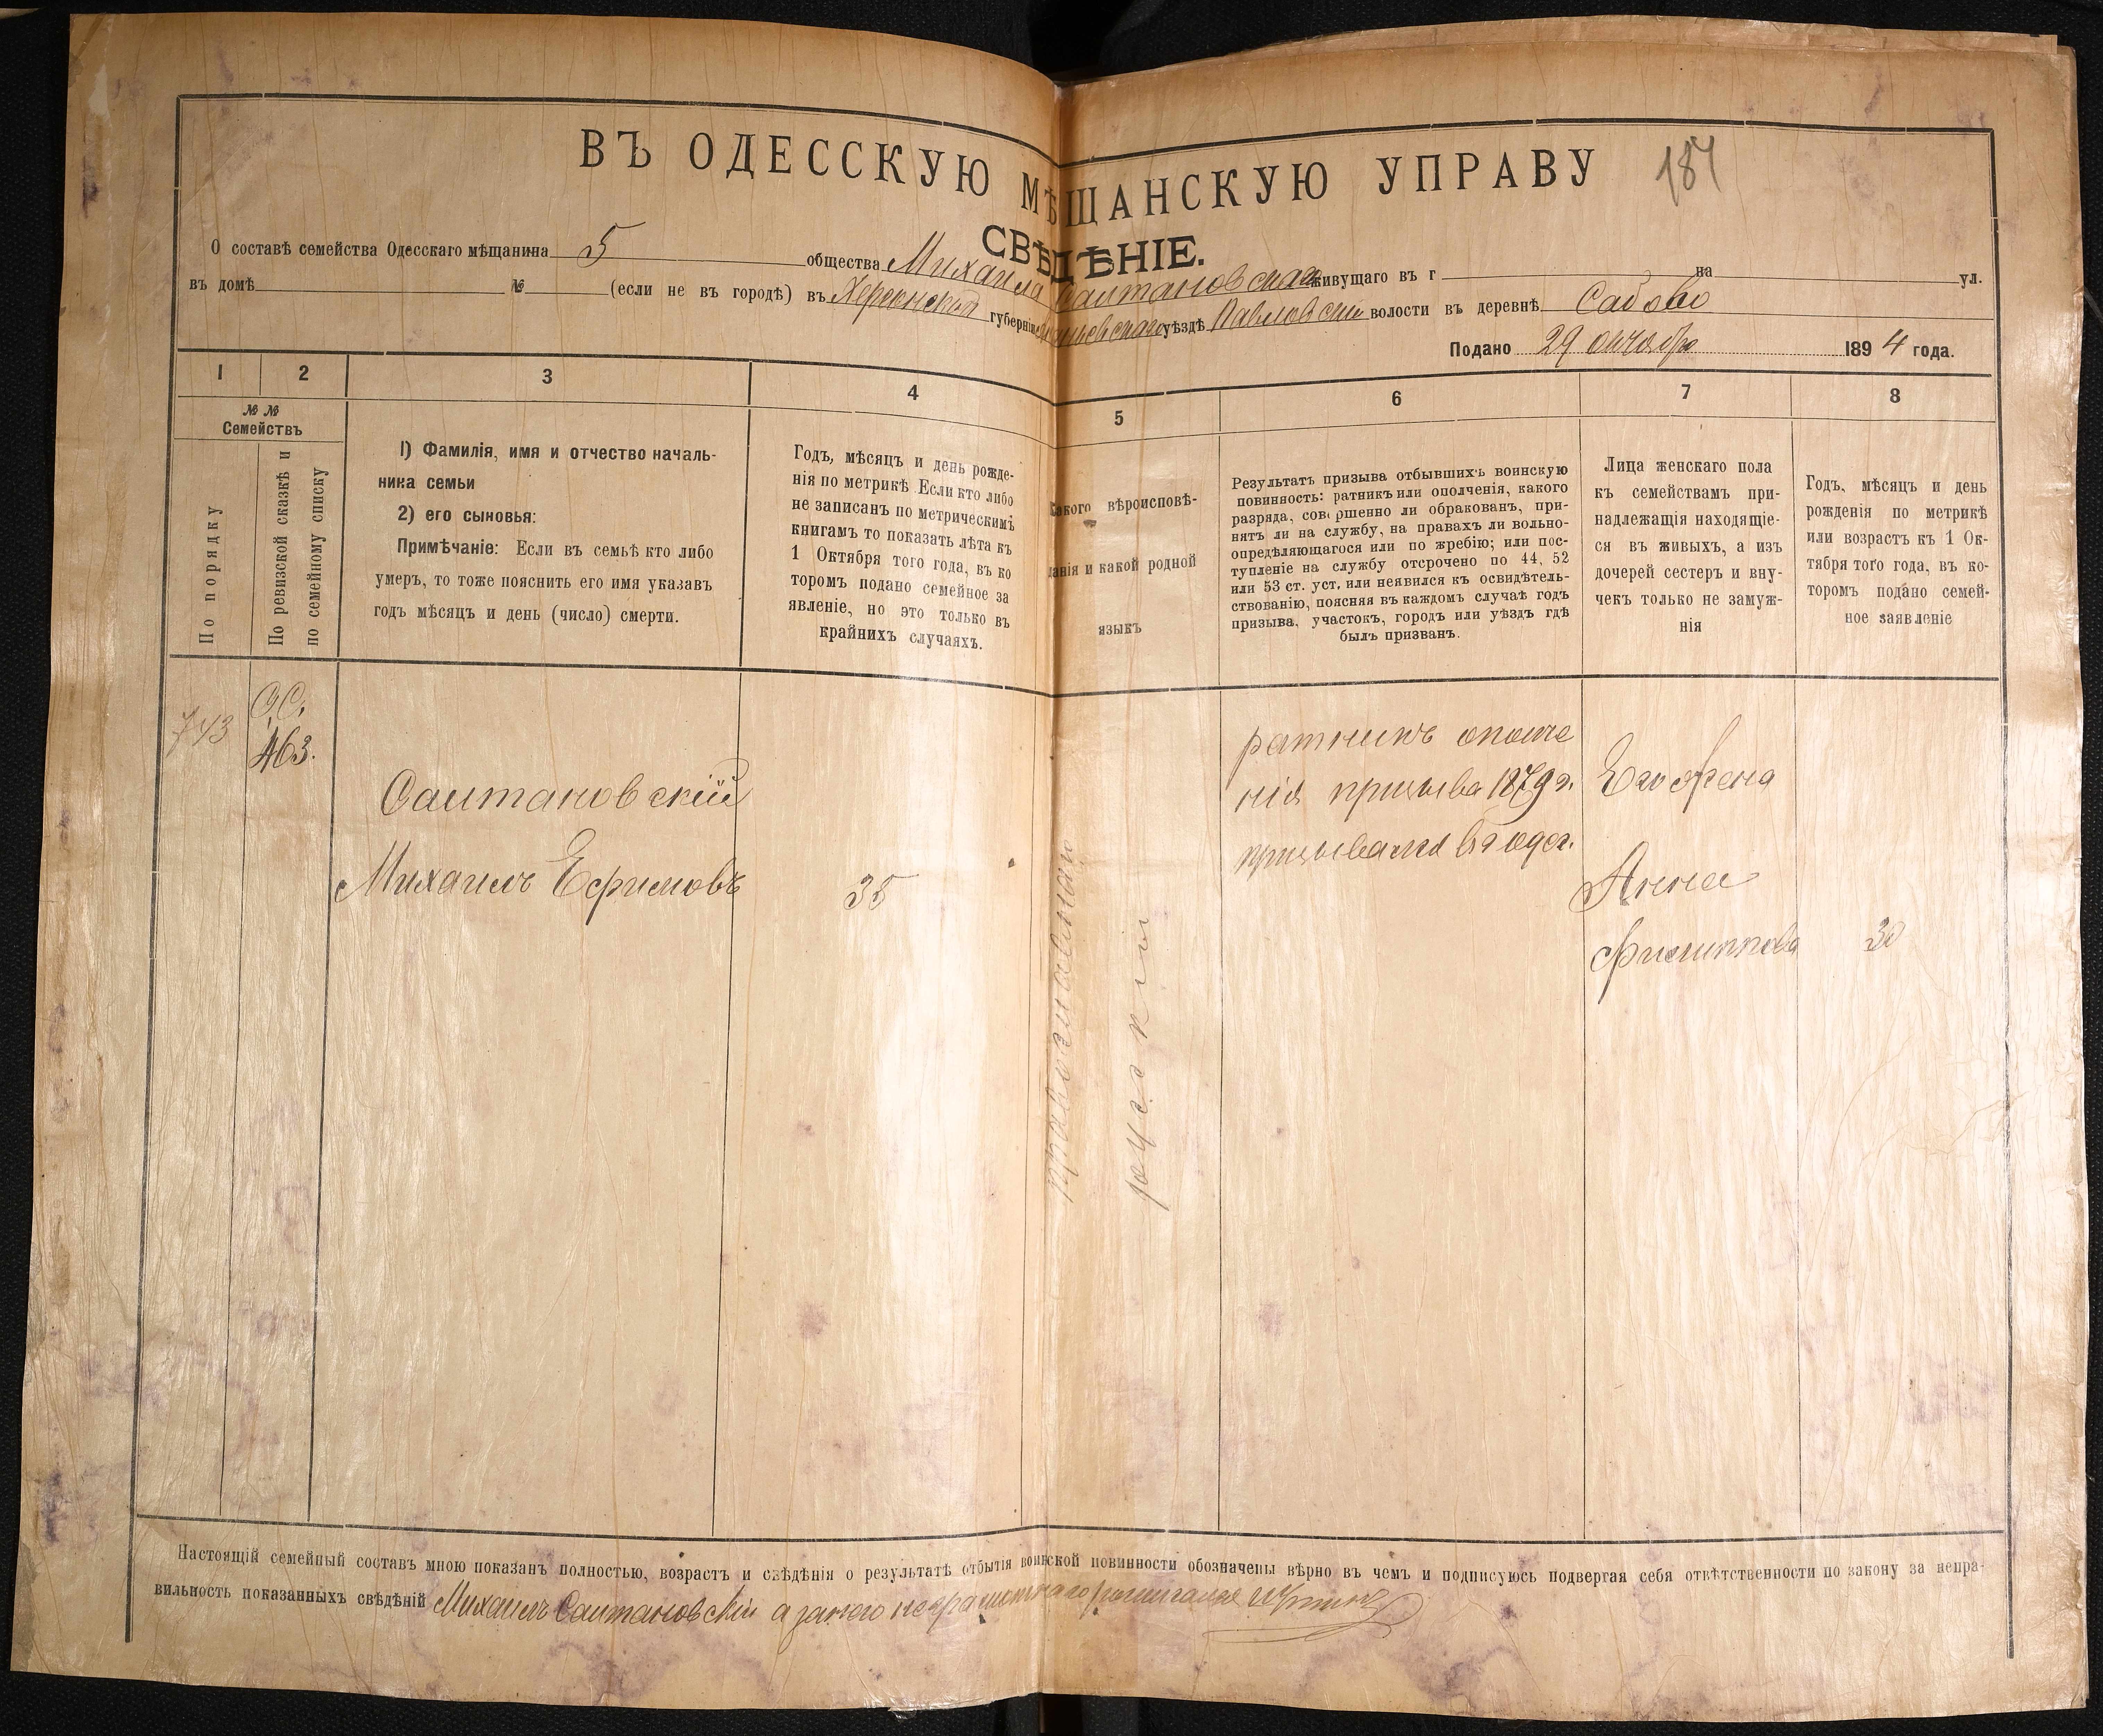 ВЪ ОДЕССКУЮ МѢЩАНСКУЮ УПРАВУ 187
СВѢДѢНІЕ.
О составѣ семейства Одесскаго мѣщанина 5 общества Михаила Саитановскаго живущаго въ г на ул.
въ домѣ № (если не въ городѣ) въ Херсонской губерніи уѣздѣ Павловской волости въ деревнѣ Садово
Подано 29 октября 1894 года.
1 2 3 4 5 6 7 8
№ № Семействъ
По порядку
По ревизской сказкѣ и
по семейному списку
1) Фамилія, имя и отчество началь-
ника семьи
2) его сыновья:
Примѣчаніе: Если въ семьѣ кто либо
умеръ, то тоже пояснить его имя указавъ
годъ мѣсяцъ и день (число) смерти.
Годъ, мѣсяцъ и день рожде-
нія по метрикѣ Если кто либо
не записанъ по метрическимъ
книгамъ то показать лѣта къ
1 Октября того года, въ ко
торомъ подано семейное за
явленіе, но это только въ
крайнихъ случаяхъ.
Какого вѣроисповѣ-
данія и какой родной
языкъ
Результатъ призыва отбывшихъ воинскую
повинность: ратникъ или ополченія, какого
разряда, совершенно ли обракованъ, при-
нятъ ли на службу, на правахъ ли вольно-
опредѣляющагося или по жребію; или пос-
тупленіе на службу отсрочено по 44, 52
или 53 ст. уст. или неявился къ освидѣтель-
ствованію, поясняя въ каждомъ случаѣ годъ
призыва, участокъ, городъ или уѣздъ гдѣ
былъ призванъ.
Лица женскаго пола
къ семействамъ при-
надлежащія находящіе-
ся въ живыхъ, а изъ
дочерей сестеръ и вну-
чекъ только не замуж-
нія
Годъ, мѣсяцъ и день
рожденія по метрикѣ
или возрастъ къ 1 Ок-
тября того года, въ ко-
торомъ подано семей-
ное заявленіе
743
С.С.
463.
Саитановскій
Михаилъ Ефимовъ
35
православный
русскій
ратникъ ополче
нія призыва 1879 г.
призывался въ одес.
Его жена
Анна
Филиппова
30
Настоящій семейный составъ мною показанъ полностью, возрастъ и свѣдѣнія о результатѣ отбытія воинской повинности обозначены вѣрно въ чемъ и подписуюсь подвергая себя отвѣтственности по закону за непра-
вильность показанныхъ свѣдѣній Михаилъ Саитановскій а занего неграмотнаго росписался